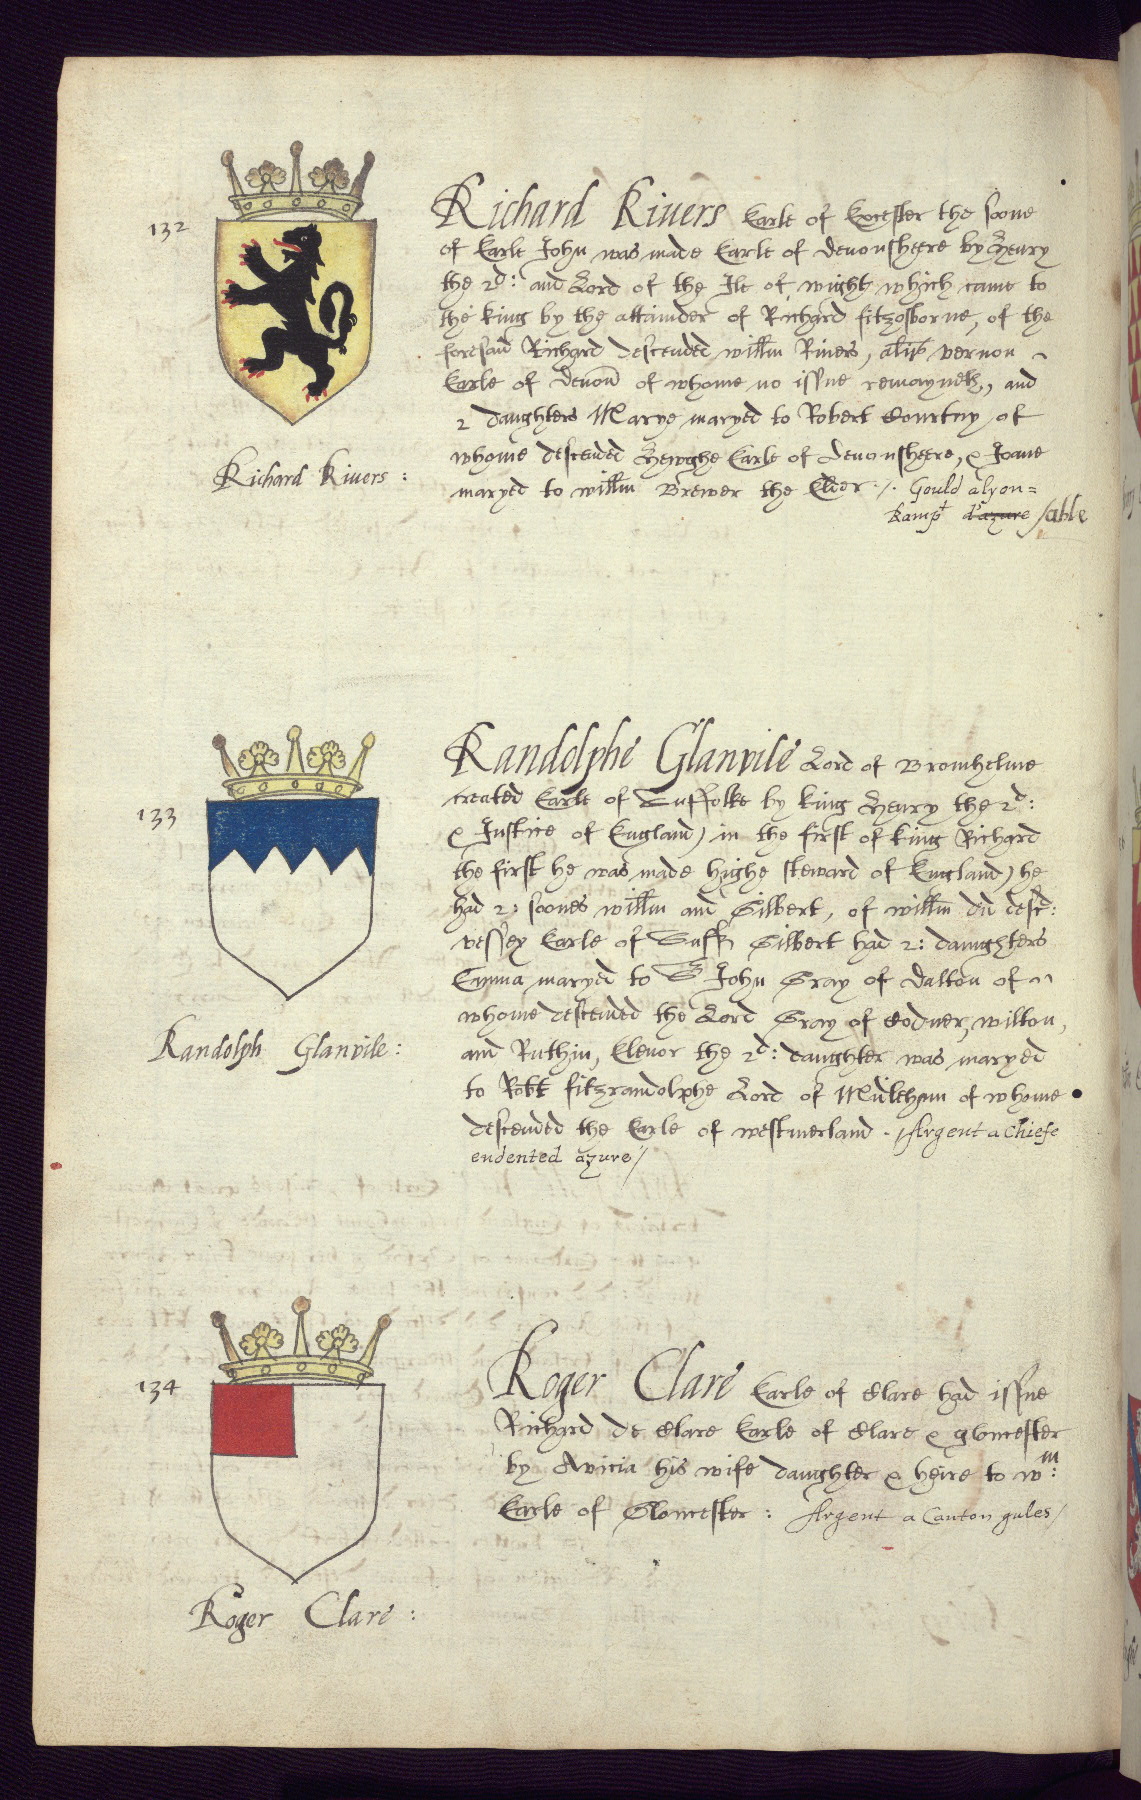 132
Richard Rivers Earle of Excester the soone
of Earle John was made Earle of Devonsheere by Henry
the 2d: and Lord of the Ile of wight which came to
the king by the attainder of Richard fitzosborne, of the
foresaid Richard descended willm Rivers, alijs vernon
Earle of Devon of whome no issue remayneth, and
2 daughters Marye maryed to Robert Courtny of
whome descended Hewghe Earle of Devonsheere, & Joane
maryed to willm Brewer the Elder ./. Gould a lyon=
Rampt d'azure sable
Richard Rivers:
133
Randolphe Glanvile Lord of Bromhelme
created Earle of Suffolke by king Henry the 2d:
& Justice of England, in the first of king Richard
the first he was made highe steward of England, he
had 2: soones willm and Gilbert, of willm did descd:
vessey Earle of Suff. Gilbert had 2: daughters
Emma maryed to Sr John Gray of Dalton of
whome descended the Lord Gray of Codner, wilton,
and Ruthin, Elenor the 2d: daughter was maryed
to Robt fitzrandolphe Lord of of whome
descended the Earle of westmerland. / Argent a Chiefe
endented azure /
Randolph Glanvile:
134
Roger Clare Earle of Clare had issue
Richard de Clare Earle of Clare & glocester
by Avicia his wife daughter & heire to wm:
Earle of Glocester: Argent a Canton gules /
Roger Clare: